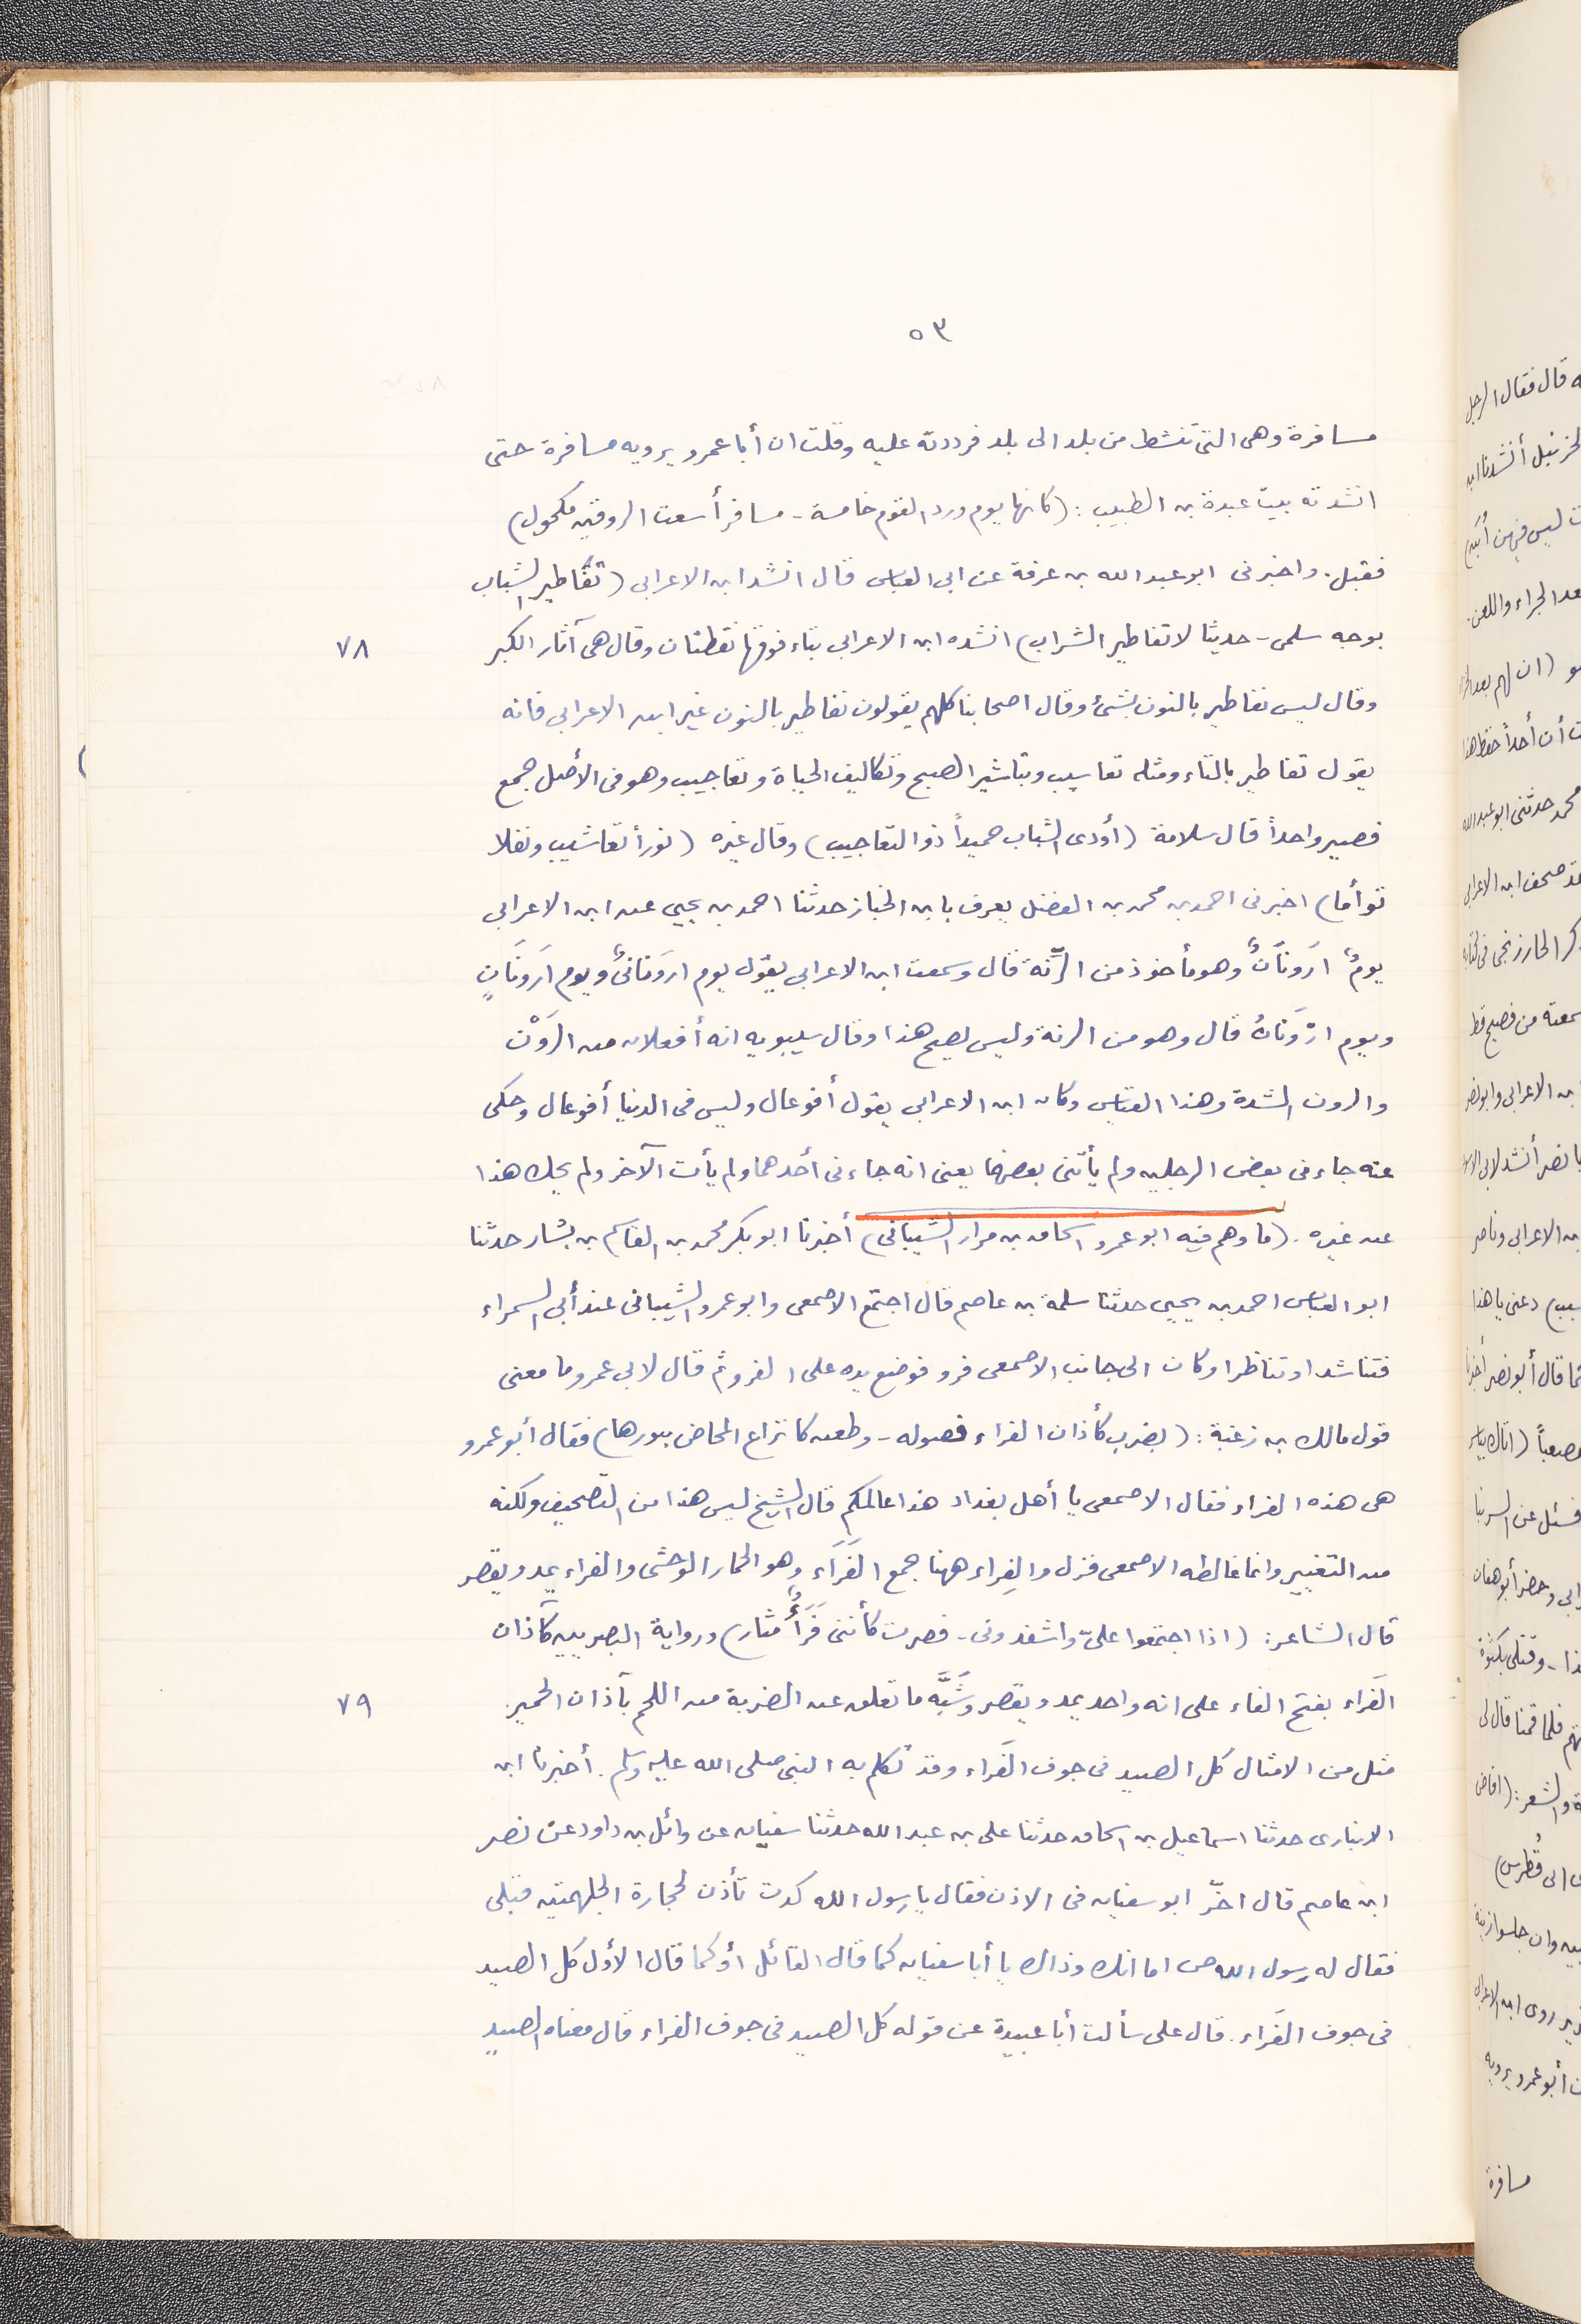 ٥٣
مسافرة وهى التى تنشط من بلد الى بلد فرددته عليه وقلت ان أبا عمرو يرويه مسافرة حتى
انشدته بيت عبدة بن الطبيب: (كانها يوم ورد القوم خامسة - مسافر أسعت الروقين مكحول)
فقبل. واخبرنى ابو عبد الله بن عرفة عن ابى العباس قال انشد ابن الاعرابى (تقاطير الشباب
بوجه سلمى - حديثا لا تفاطير الشراب) انشده ابن الاعرابى بتاء فوقها نقطتان وقال هى آثار الكبر
٧٨
وقال ليس نفاطير بالنون بشئ وقال اصحابنا كلهم يقولون نفاطير بالنون غير ابن الاعرابى فانه
يقول تفاطير بالتاء ومثله تعاسيب وتباشير الصبح وتكاليف الحياة وتعاجيب وهو فى الأصل جمع
فصير واحداً قال سلامة (أودى الشباب حميداً ذو التعاجيب) وقال غيره (نوراً تعاشيب ونفلا
توأما) اخبرنى احمد بن محمد بن الفضل يعرف بابن الخباز حدثنا احمد بن يحيى عن ابن الاعرابى
يومٌ ارَونَانٌ وهو مأخوذ من الرنّة قال وسمعت ابن الاعرابى يقول يوم ارَونانىٌ ويوم ارَونَانٍ
ويوم ارْوَنَانُ قال وهو من الرنة وليس يصح هذا وقال سيبويه انه أفعلان من الرَوْن
والرون الشدة وهذا القياس وكان ابن الاعرابى يقول أفوعال وليس فى الدنيا أفوعال وحكى
عنه جاءنى بعض الرجلين ولم يأتنى بعضهما يعنى انه جاءنى أحدهما ولم يأت الآخر ولم يحك هذا
عن غيره. (ما وهم فيه ابو عمرو اسحاق بن مرار الشيبانى) أخبرنا ابو بكر محمد بن القاسم بن بشار حدثنا
ابو العباس احمد بن يحيى حدثنا سلمة بن عاصم قال اجتمع الاصمعى وابو عمرو الشيبانى عند أبى السمراء
فتناشدا وتناظرا وكان الى جانب الاصمعى فرو فوضع يده على الفرو ثم قال لابى عمرو ما معنى
قول مالك بن زغبة: (بضرب كأذان الفراء فصوله - وطعن كانزاع المخاض ببورها) فقال أبو عمرو
هى هذه الفراء فقال الاصمعى يا أهل بغداد هذا عالمكم قال الشيخ ليس هذا من التصحيف ولكنه
من التغيير وانما غالطه الاصمعى فزل والفِراء ههنا جمع الفَرَاء وهو الحمار الوحشى والفراء يمد ويقصر
قال الشاعر: (اذا اجتمعوا علىّ واشقذونى - فصرت كأننى فَرَأٌ مثار) ورواية البصريين كآذان
الفَراء بفتح الفاء على انه واحد يمد ويقصر وشَبَّه ما تعلق عن الضربة من اللحم بآذان الحمير.
٧٩
مثل من الامثال كل الصيد فى جوف الفَراء وقد تكلم به النبى صلى الله عليه وسلم. أخبرنا ابن
الانبارى حدثنا اسماعيل بن اسحاق حدثنا على بن عبد الله حدثنا سفيان عن وائل بن داود عن نصر
ابن عاصم قال اخّر ابو سفيان فى الاذن فقال يا رسول الله كدت تأذن لحجارة الجلهمتين قبلى
فقال له رسول الله ص اما انك وذاك يا أبا سفيان كما قال القائل أو كما قال الأول كل الصيد
فى جوف الفَراء. قال على سألت أبا عبيدة عن قوله كل الصيد فى جوف الفراء قال معناه الصيد